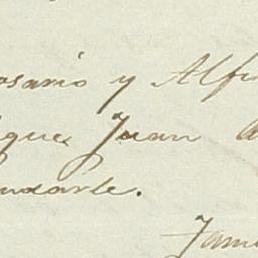 osario y Alfr
que Juan
udarle.
Jam